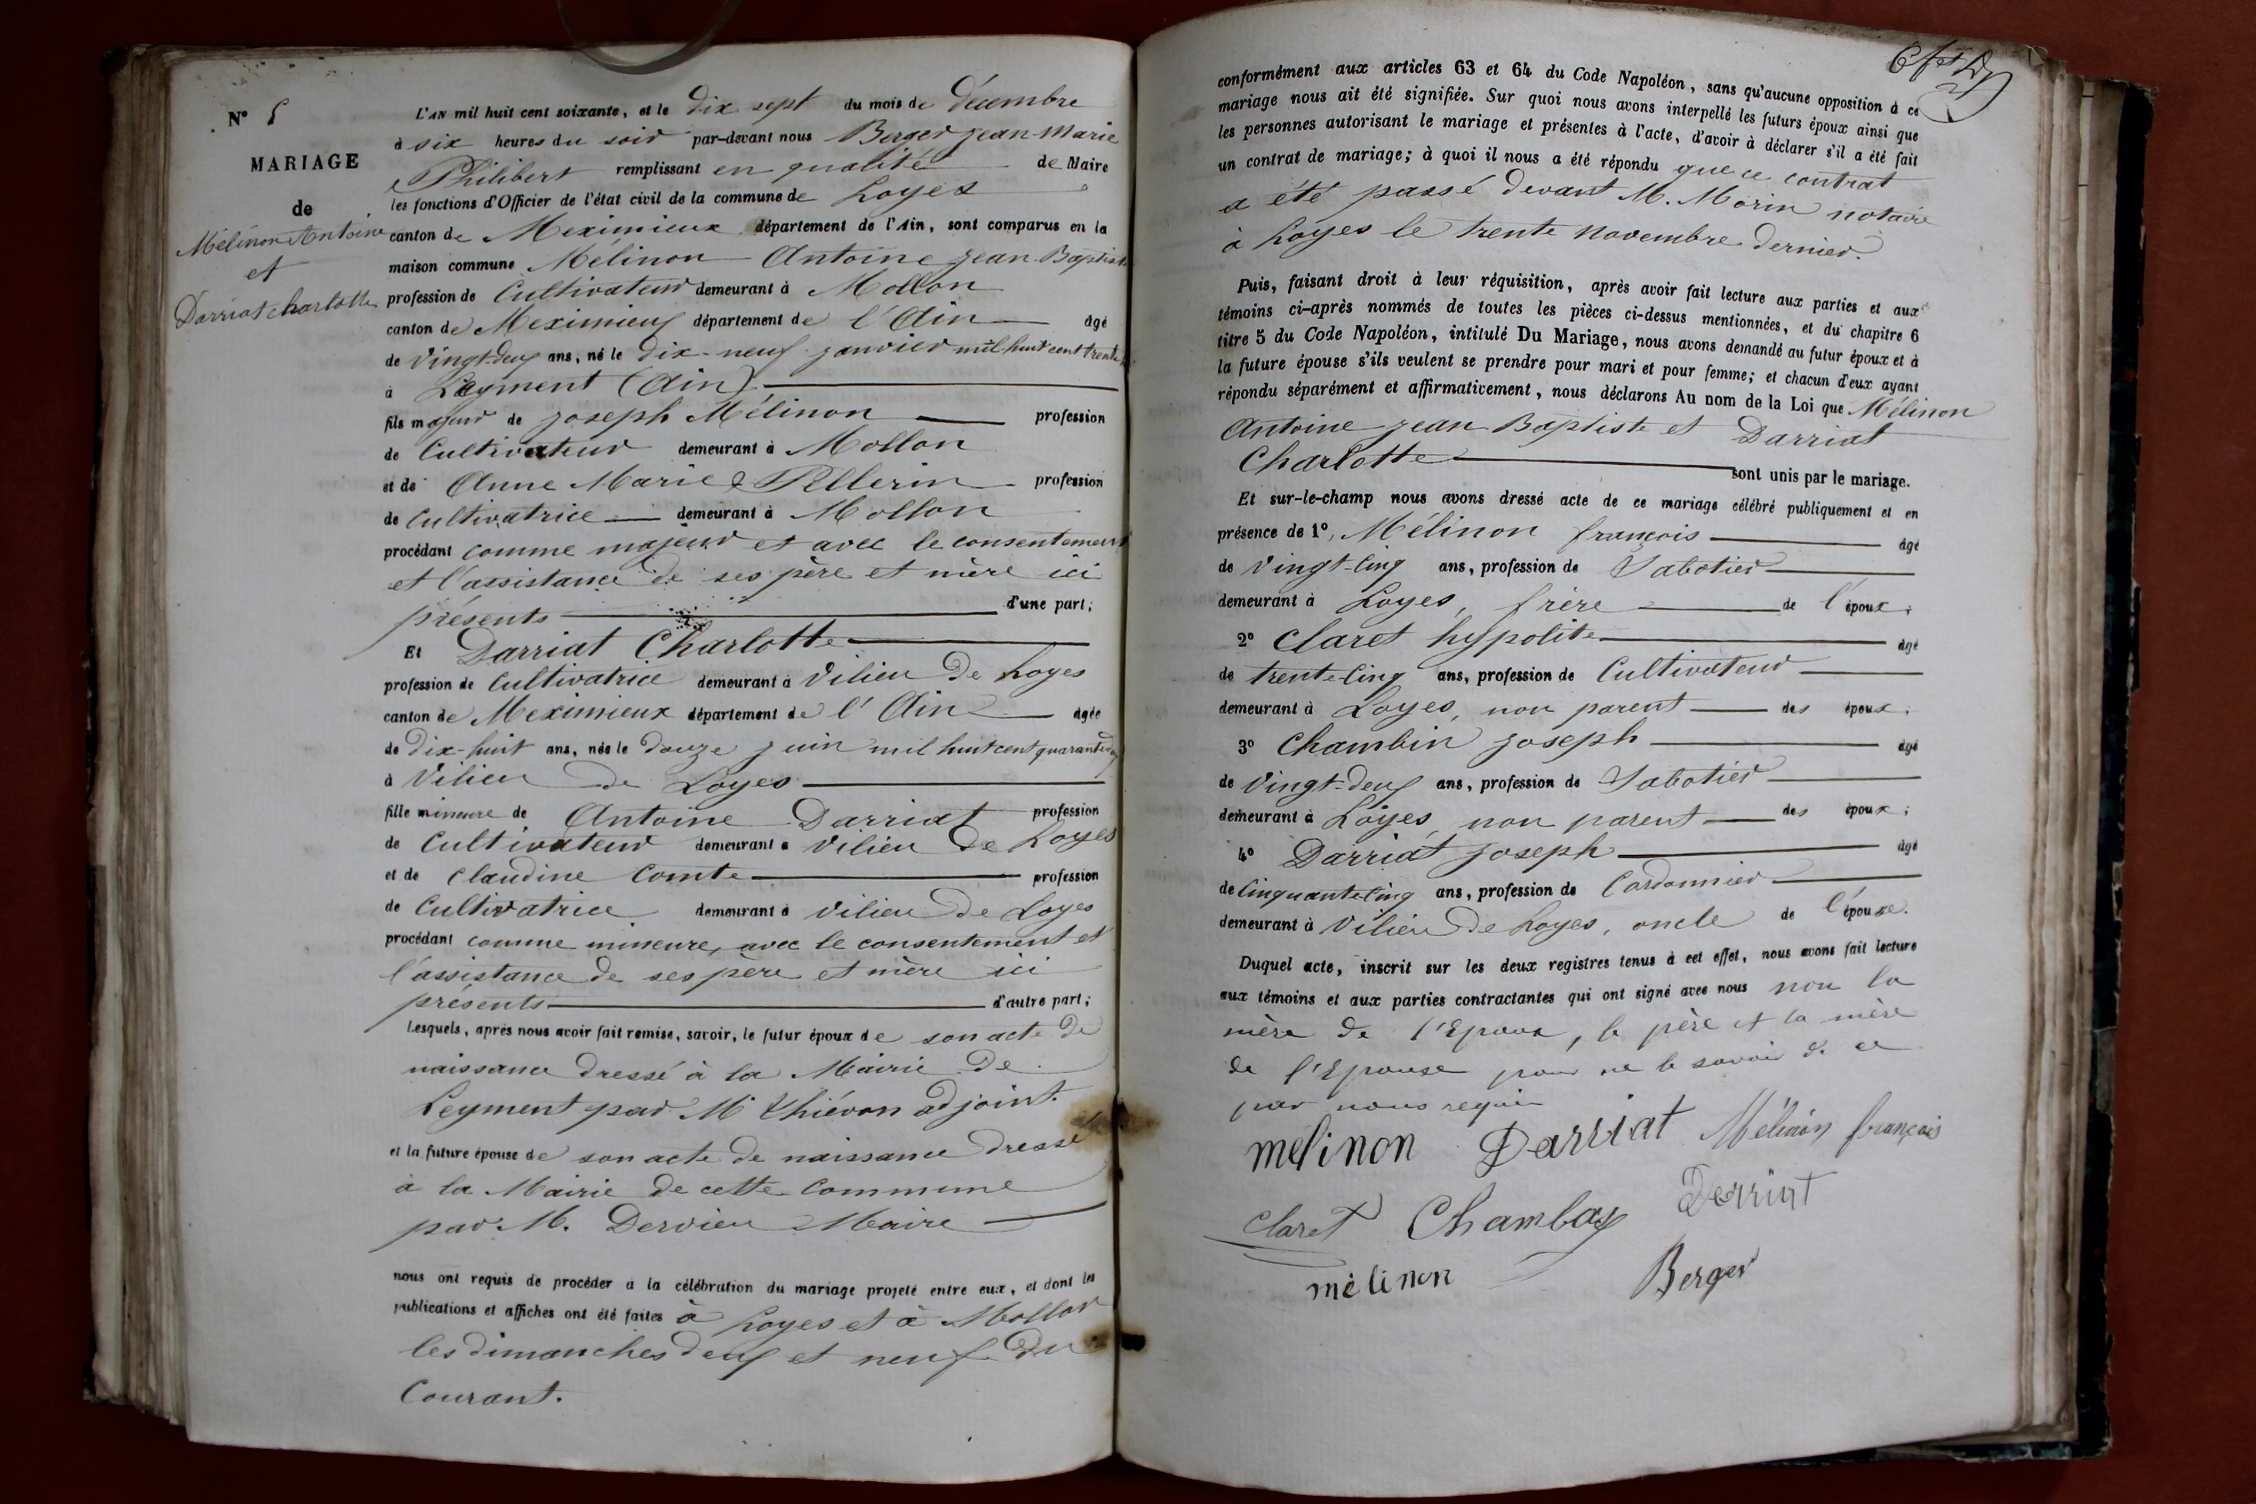 N° 5
MARIAGE
de
Mélinon Antoine
et
Darriat charlotte
L'AN mil huit cent soixante, et le dix sept du mois de décembre
à six heures du soir par-devant nous Berger jean-Marie
Philibert remplissant en qualité de Maire
les fonctions d'Officier de l'état civil de la commune de Loyes
canton de Meximieux département de l'Ain, sont comparus en la
maison commune Mélinon Antoine jean Baptiste
profession de Cultivateur demeurant à Mollon
canton de Meximieux département de l'Ain âgé
de vingt-deux ans, né le dix-neuf janvier mil huit cent trente
à Leyment (Ain)
fils majeur de joseph Mélinon profession
de Cultivateur demeurant à Mollon
et de Anne Marie Pellerin profession
de Cultivatrice demeurant à Mollon
procédant comme majeur et avec le consentement
et l'assistance de ses père et mère ici
présents d'une part;
Et Darriat Charlotte
profession de Cultivatrice demeurant à Vilieu de Loyes
canton de Meximieux département de l'Ain âgée
de dix-huit ans, née le douze juin mil huit cent quarante deux
à Vilieu de Loyes
fille mineure de Antoine Darriat profession
de Cultivateur demeurant à Vilieu de Loyes
et de Claudine Comte profession
de Cultivatrice demeurant à Vilieu de Loyes
procédant comme mineure, avec le consentement et
l'assistance de ses père et mère ici
présents d'autre part;
Lesquels, après nous avoir fait remise, savoir, le futur époux de son acte de
naissance dressé à la Mairie de
Leyment par Mr Thiévon adjoint.
et la future épouse de son acte de naissance dressé
à la Mairie de cette Commune
par M. Dervieu Maire
nous ont requis de procéder à la célébration du mariage projeté entre eux, et dont les
publications et affiches ont été faites à Loyes et à Mollon
les dimanches deux et neuf du
Courant.
conformément aux articles 63 et 64 du Code Napoléon, sans qu'aucune opposition à ce
mariage nous ait été signifiée. Sur quoi nous avons interpellé les futurs époux ainsi que
les personnes autorisant le mariage et présentes à l'acte, d'avoir à déclarer s'il a été fait
un contrat de mariage; à quoi il nous a été répondu que ce contrat
a été passé devant M. Morin notaire
à Loyes le trente novembre dernier.
Puis, faisant droit à leur réquisition, après avoir fait lecture aux parties et aux
témoins ci-après nommés de toutes les pièces ci-dessus mentionnées, et du chapitre 6
titre 5 du Code Napoléon, intitulé Du Mariage, nous avons demandé au futur époux et à
la future épouse s'ils veulent se prendre pour mari et pour femme; et chacun d'eux ayant
répondu séparément et affirmativement, nous déclarons Au nom de la Loi que Mélinon
Antoine jean Baptiste et Darriat
Charlotte sont unis par le mariage.
Et sur-le-champ nous avons dressé acte de ce mariage célébré publiquement et en
présence de 1°, Mélinon françois âgé
de vingt-cinq ans, profession de Sabotier
demeurant à Loyes, frère de l'époux;
2° Claret hypolite âgé
de trente-cinq ans, profession de Cultivateur
demeurant à Loyes, non parent des époux.
3° Chambin joseph âgé
de vingt-deux ans, profession de Sabotier
demeurant à Loyes, non parent des époux;
4° Darriat joseph âgé
de cinquante-cinq ans, profession de Cordonnier
demeurant à Vilieu de Loyes, oncle de l'épouse.
Duquel acte, inscrit sur les deux registres tenus à cet effet, nous avons fait lecture
aux témoins et aux parties contractantes qui ont signé avec nous non la
mère de l'Epoux, le père et la mère
de l'Epouse pour ne le savoir de ce
par nous requis
mélinon Darriat Mélinon françois
Claret Chambay Derriat
mélinon Berger